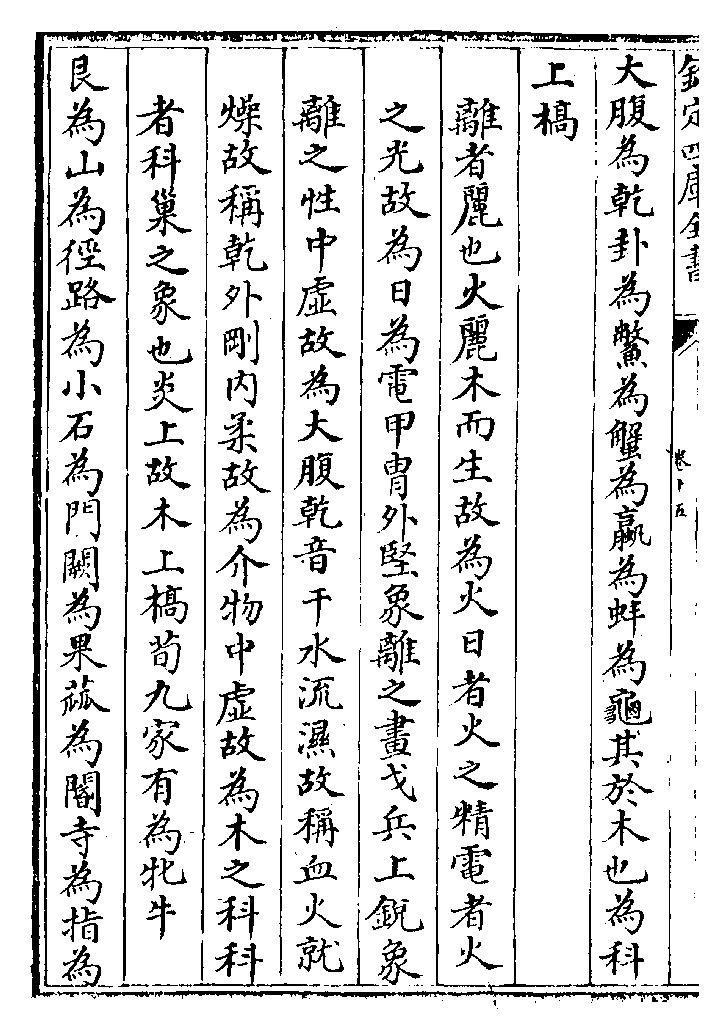 欽定四庫全書
卷十五
大腹為乾卦為鱉為蟹為蠃為蚌為龜其於木也為科
上槁
離者麗也火麗木而生故為火日者火之精電者火
之光故為日為電甲胄外堅象離之畫戈兵上銳象
離之性中虛故為大腹乾音干水流濕故稱血火就
燥故稱乾外剛内柔故為介物中虛故為木之科科
者科巢之象也炎上故木上槁荀九家有為牝牛
艮為山為徑路為小石為門闕為果蓏為閽寺為指為